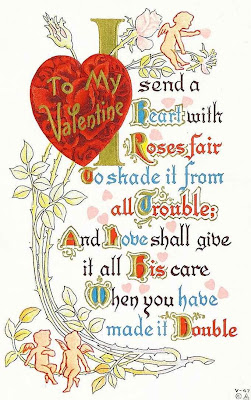 To My
Valentine
I send a
Heart with
Roses fair
To shade it from
all Trouble;
And Love shall give
it all His care
When you have
made it Double